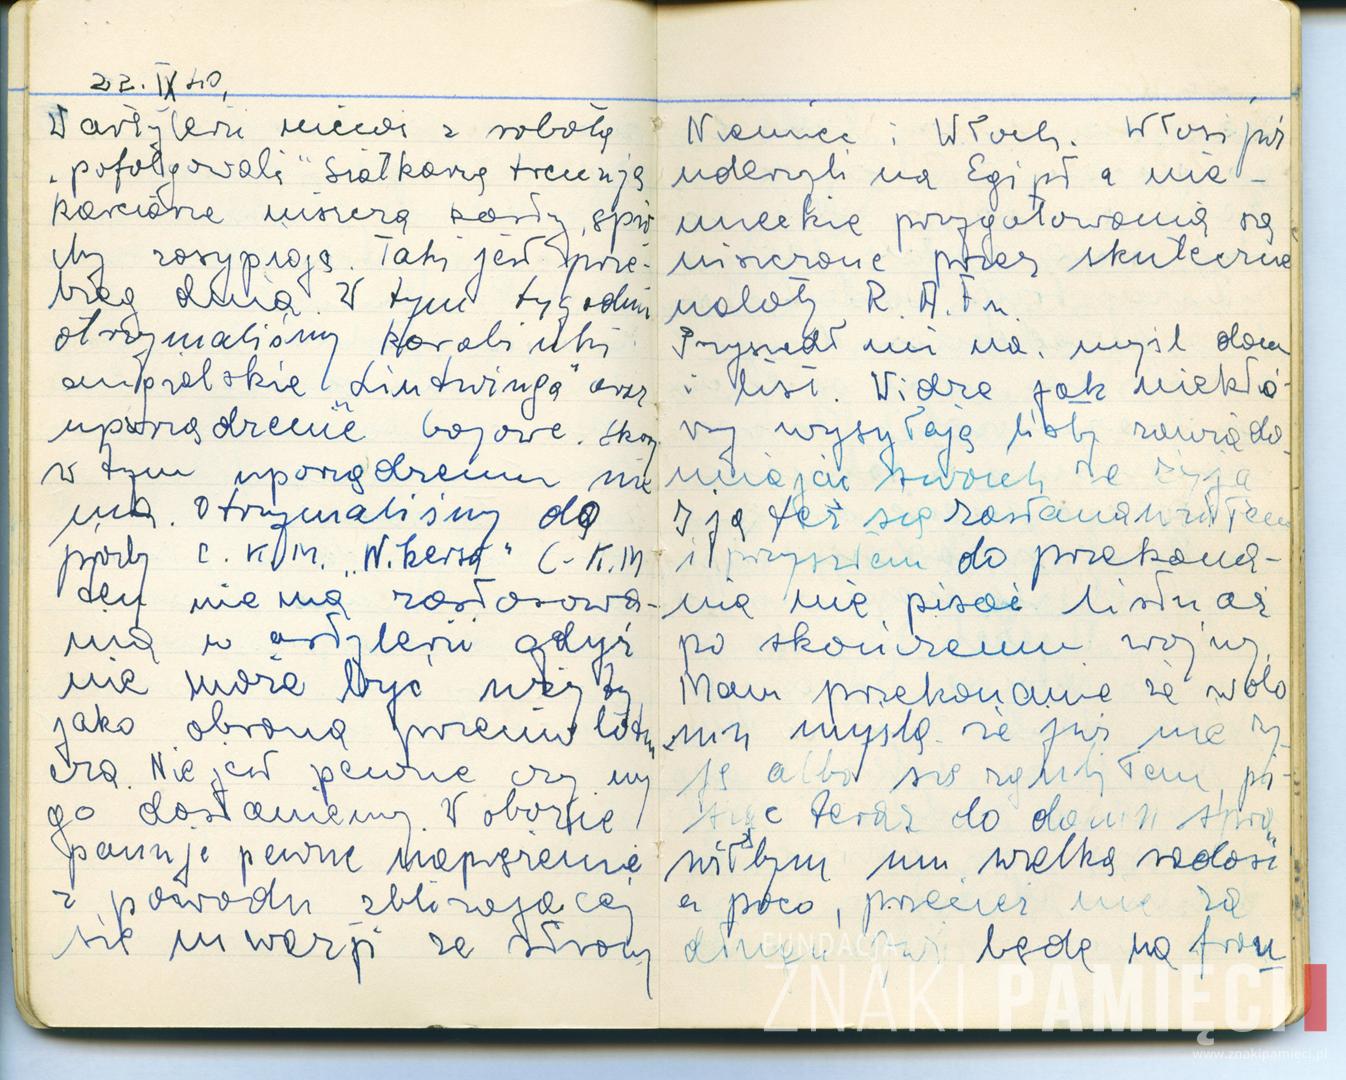 22. IX 40,
W artylerii nieco z robotą
„pofolgowali" siatkarzą trenują
karciarze niszczą karty, śpio
chy zasypiają. Taki jest prze-
bieg dnia. W tym tygodniu
otrzymaliśmy karabinki
angielskie „Lintwinga" oraz
uporządzenie bojowe. Skóry
w tym uporządzeniu nie
ma. Otrzymaliśmy do
jazdy C.K.M. „Wikersa" C-K.M
ten nie ma zastosowa-
nia w artylerii gdyż
nie może być użyty
jako obrona przeciw lotn
cza. Nie jest pewne czy my
go dostaniemy. W obozie
panuje pewne naprężenie
z powodu zbliżającej
się inwazji ze strony
Niemiec i Włoch. Włosi już
uderzyli na Egipt a nie-
mieckie przygotowania są
niszczone przez skuteczne
naloty R.A.F.u.
Przyszedł mi na myśl dom
i list. Widzę jak niektó-
rzy wysyłają listy zawiada
miając swoich że żyją
I ja też się zastanawiałem
i przyszłem do przekona-
nia nie pisać listu aż
po skończeniu wojny.
Mam przekonanie że w do
mu myślą że już nie ży-
ję albo się zgubiłem, pi-
sząc teraz do domu spra
wiłbym im wielką radość
a poco, przecież nie za
długo już będę na fron
FUNDACJA
ZNAKI PAMIĘCI
www.znakipamieci.pl